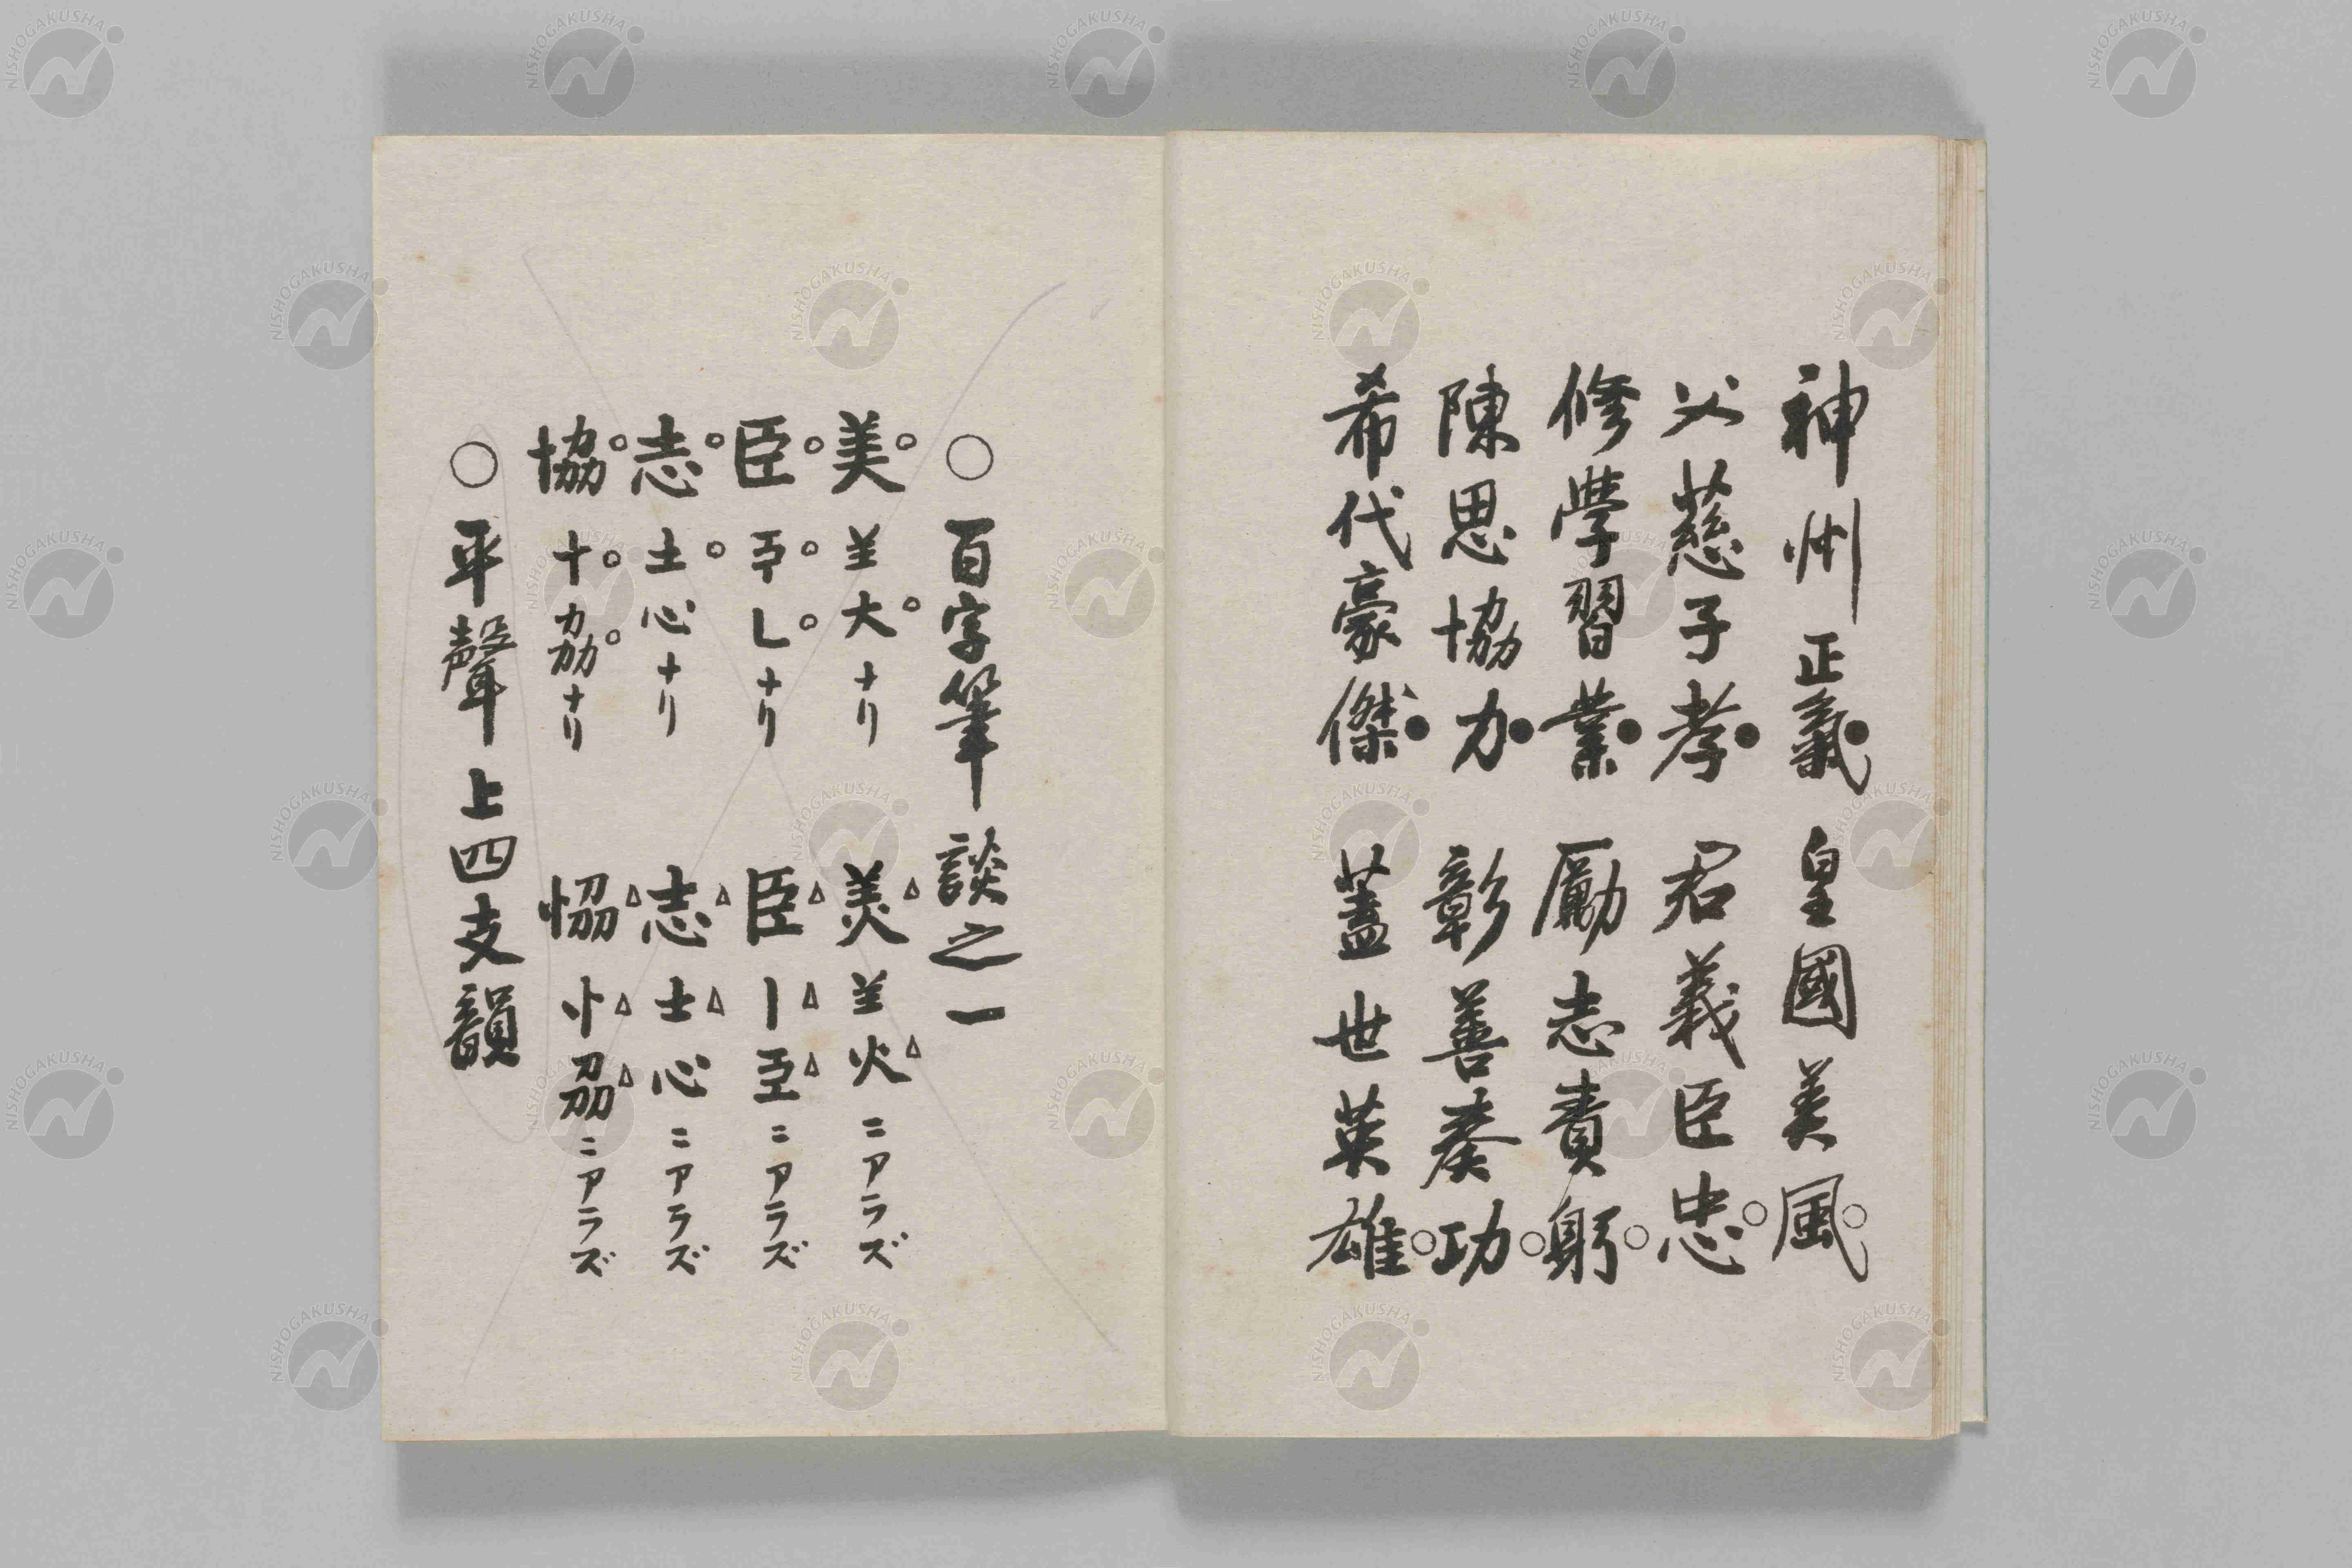 神州正義 皇國美風
父慈子孝 君義臣忠
修學習業 勵志責躬
陳思協力 彰善奏功
希代豪傑 蓋世英雄
○百字筆談之一
美 𦍌大ナリ 羙 𦍌火ニアラズ
臣 乚ナリ 臣 丨𦣝ニアラズ
志 土心ナリ 志 士心ニアラズ
協 十劦ナリ 恊 忄刕ニアラズ
○平聲上四支韻
NISHOGAKUSHA